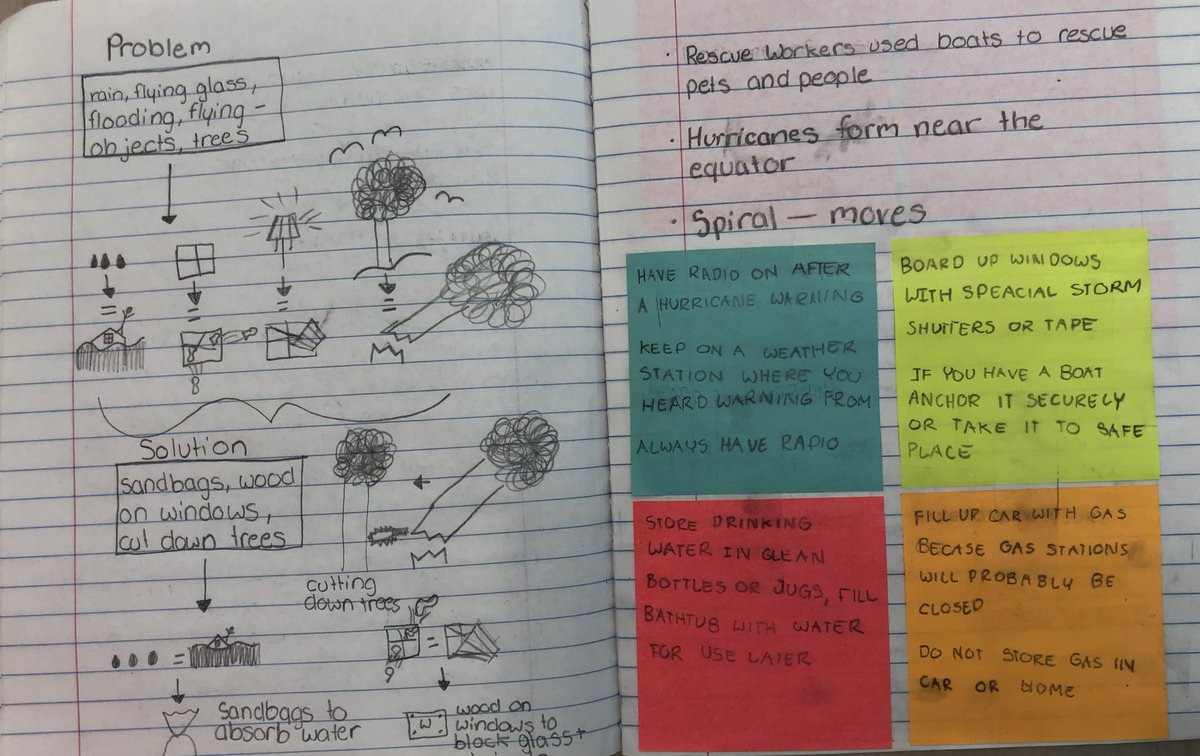 Problem
rain, flying glass,
flooding, flying -
objects, trees
=
=
=
=
Solution
sandbags, wood
on windows,
cut down trees
cutting
down trees
=
=
Sandbags to
absorb water
W
wood on
windows to
block glass+
· Rescue workers used boats to rescue
pets and people
· Hurricanes form near the
equator
· Spiral — moves
HAVE RADIO ON AFTER
A HURRICANE WARNING
KEEP ON A WEATHER
STATION WHERE YOU
HEARD WARNING FROM
ALWAYS HAVE RADIO
BOARD UP WINDOWS
WITH SPEACIAL STORM
SHUTTERS OR TAPE
IF YOU HAVE A BOAT
ANCHOR IT SECURELY
OR TAKE IT TO SAFE
PLACE
STORE DRINKING
WATER IN CLEAN
BOTTLES OR JUGS, FILL
BATHTUB WITH WATER
FOR USE LATER
FILL UP CAR WITH GAS
BECASE GAS STATIONS
WILL PROBABLY BE
CLOSED
DO NOT STORE GAS IN
CAR OR HOME